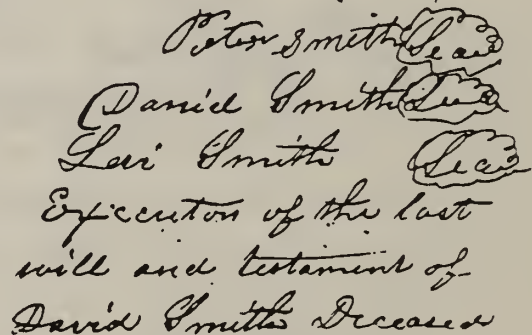 Peter Smith Seal
Daniel Smith Seal
Levi Smith Seal
Executors of the last
will and testament of
David Smith Deceased